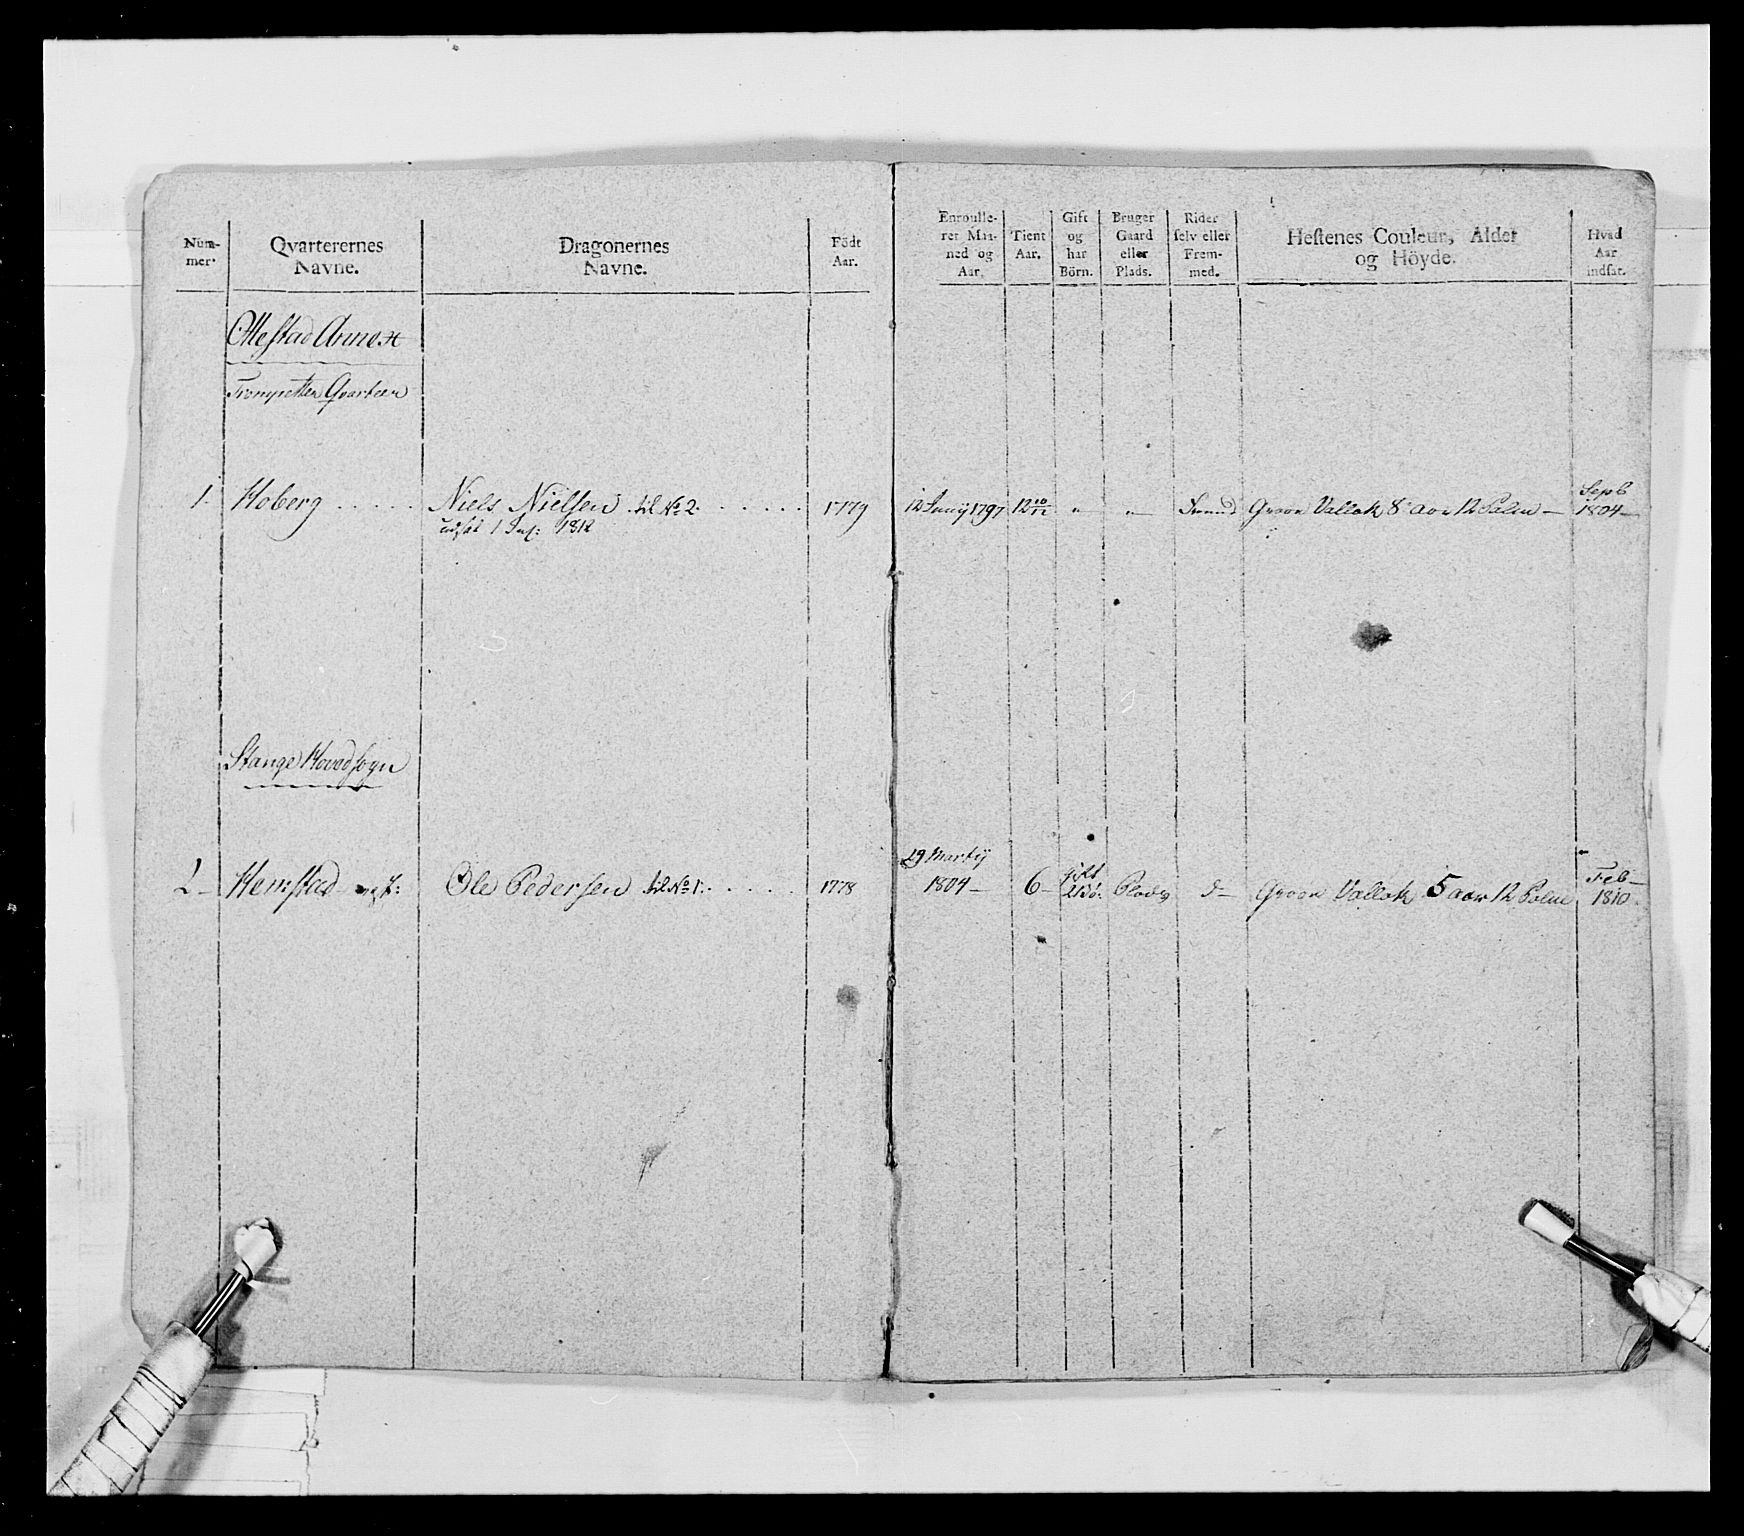 Num-
mer.
Qvarterernes
Navne.
Dragonernes
Navne.
Födt
Aar.
Enroulle-
ret Maa-
ned og
Aar.
Tient
Aar.
Gift
og
har
Börn.
Bruger
Gaard
eller
Plads.
Rider
selv eller
Frem-
med.
Hestenes Couleur, Alder
og Höyde.
Hvad
Aar
indsat.
Ottestad Annex
Trompetter Qvarteer
1. Hoberg Niels Nielsen til No 2. 1779 12 Junij 1797 12 10/12 " " Fremd Graae Vallak 8 aar 12 Palm Sepb
1804
udsat 1 1812
Stange Hovedsogn
2 Hemstad Ole Pedersen til No 1. 1778 29 Martij
1804 6 gift Plads d Graae Vallak 5 aar 12 Palm Feb
1810